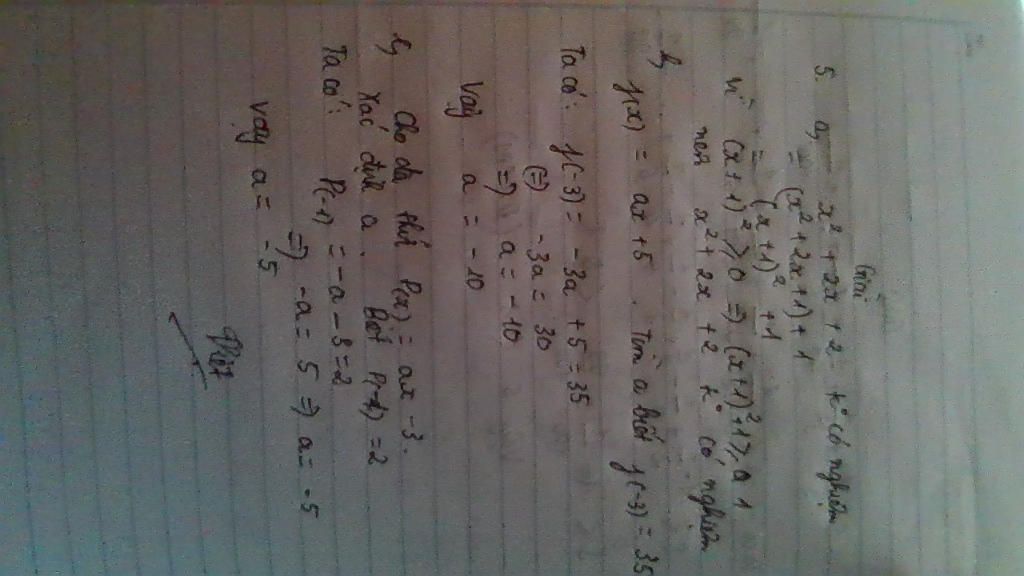 Giải
5. a, x² + 2x + 2 k° có nghiệm
= (x² + 2x + 1) + 1
= (x + 1)² + 1
Vì (x + 1)² ≥ 0 => (x + 1)² + 1 ≥ 1
nên x² + 2x + 2 k° có nghiệm
b, f(x) = ax + 5 . Tìm a biết f(-3) = 35
Ta có: f(-3) = -3a + 5 = 35
(=) -3a = 30
(=) a = -10
Vậy a = -10
c, Cho đa thức P(x) = ax - 3.
Xác định a. Biết P(-1) = 2
Ta có: P(-1) = -a - 3 = 2
=) -a = 5 =) a = -5
Vậy a = -5